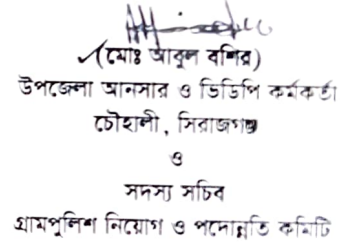 (মোঃ আবুল বশির)
উপজেলা আনসার ও ভিডিপি কর্মকর্তা
চৌহালী, সিরাজগঞ্জ
ও
সদস্য সচিব
গ্রামপুলিশ নিয়োগ ও পদোন্নতি কমিটি